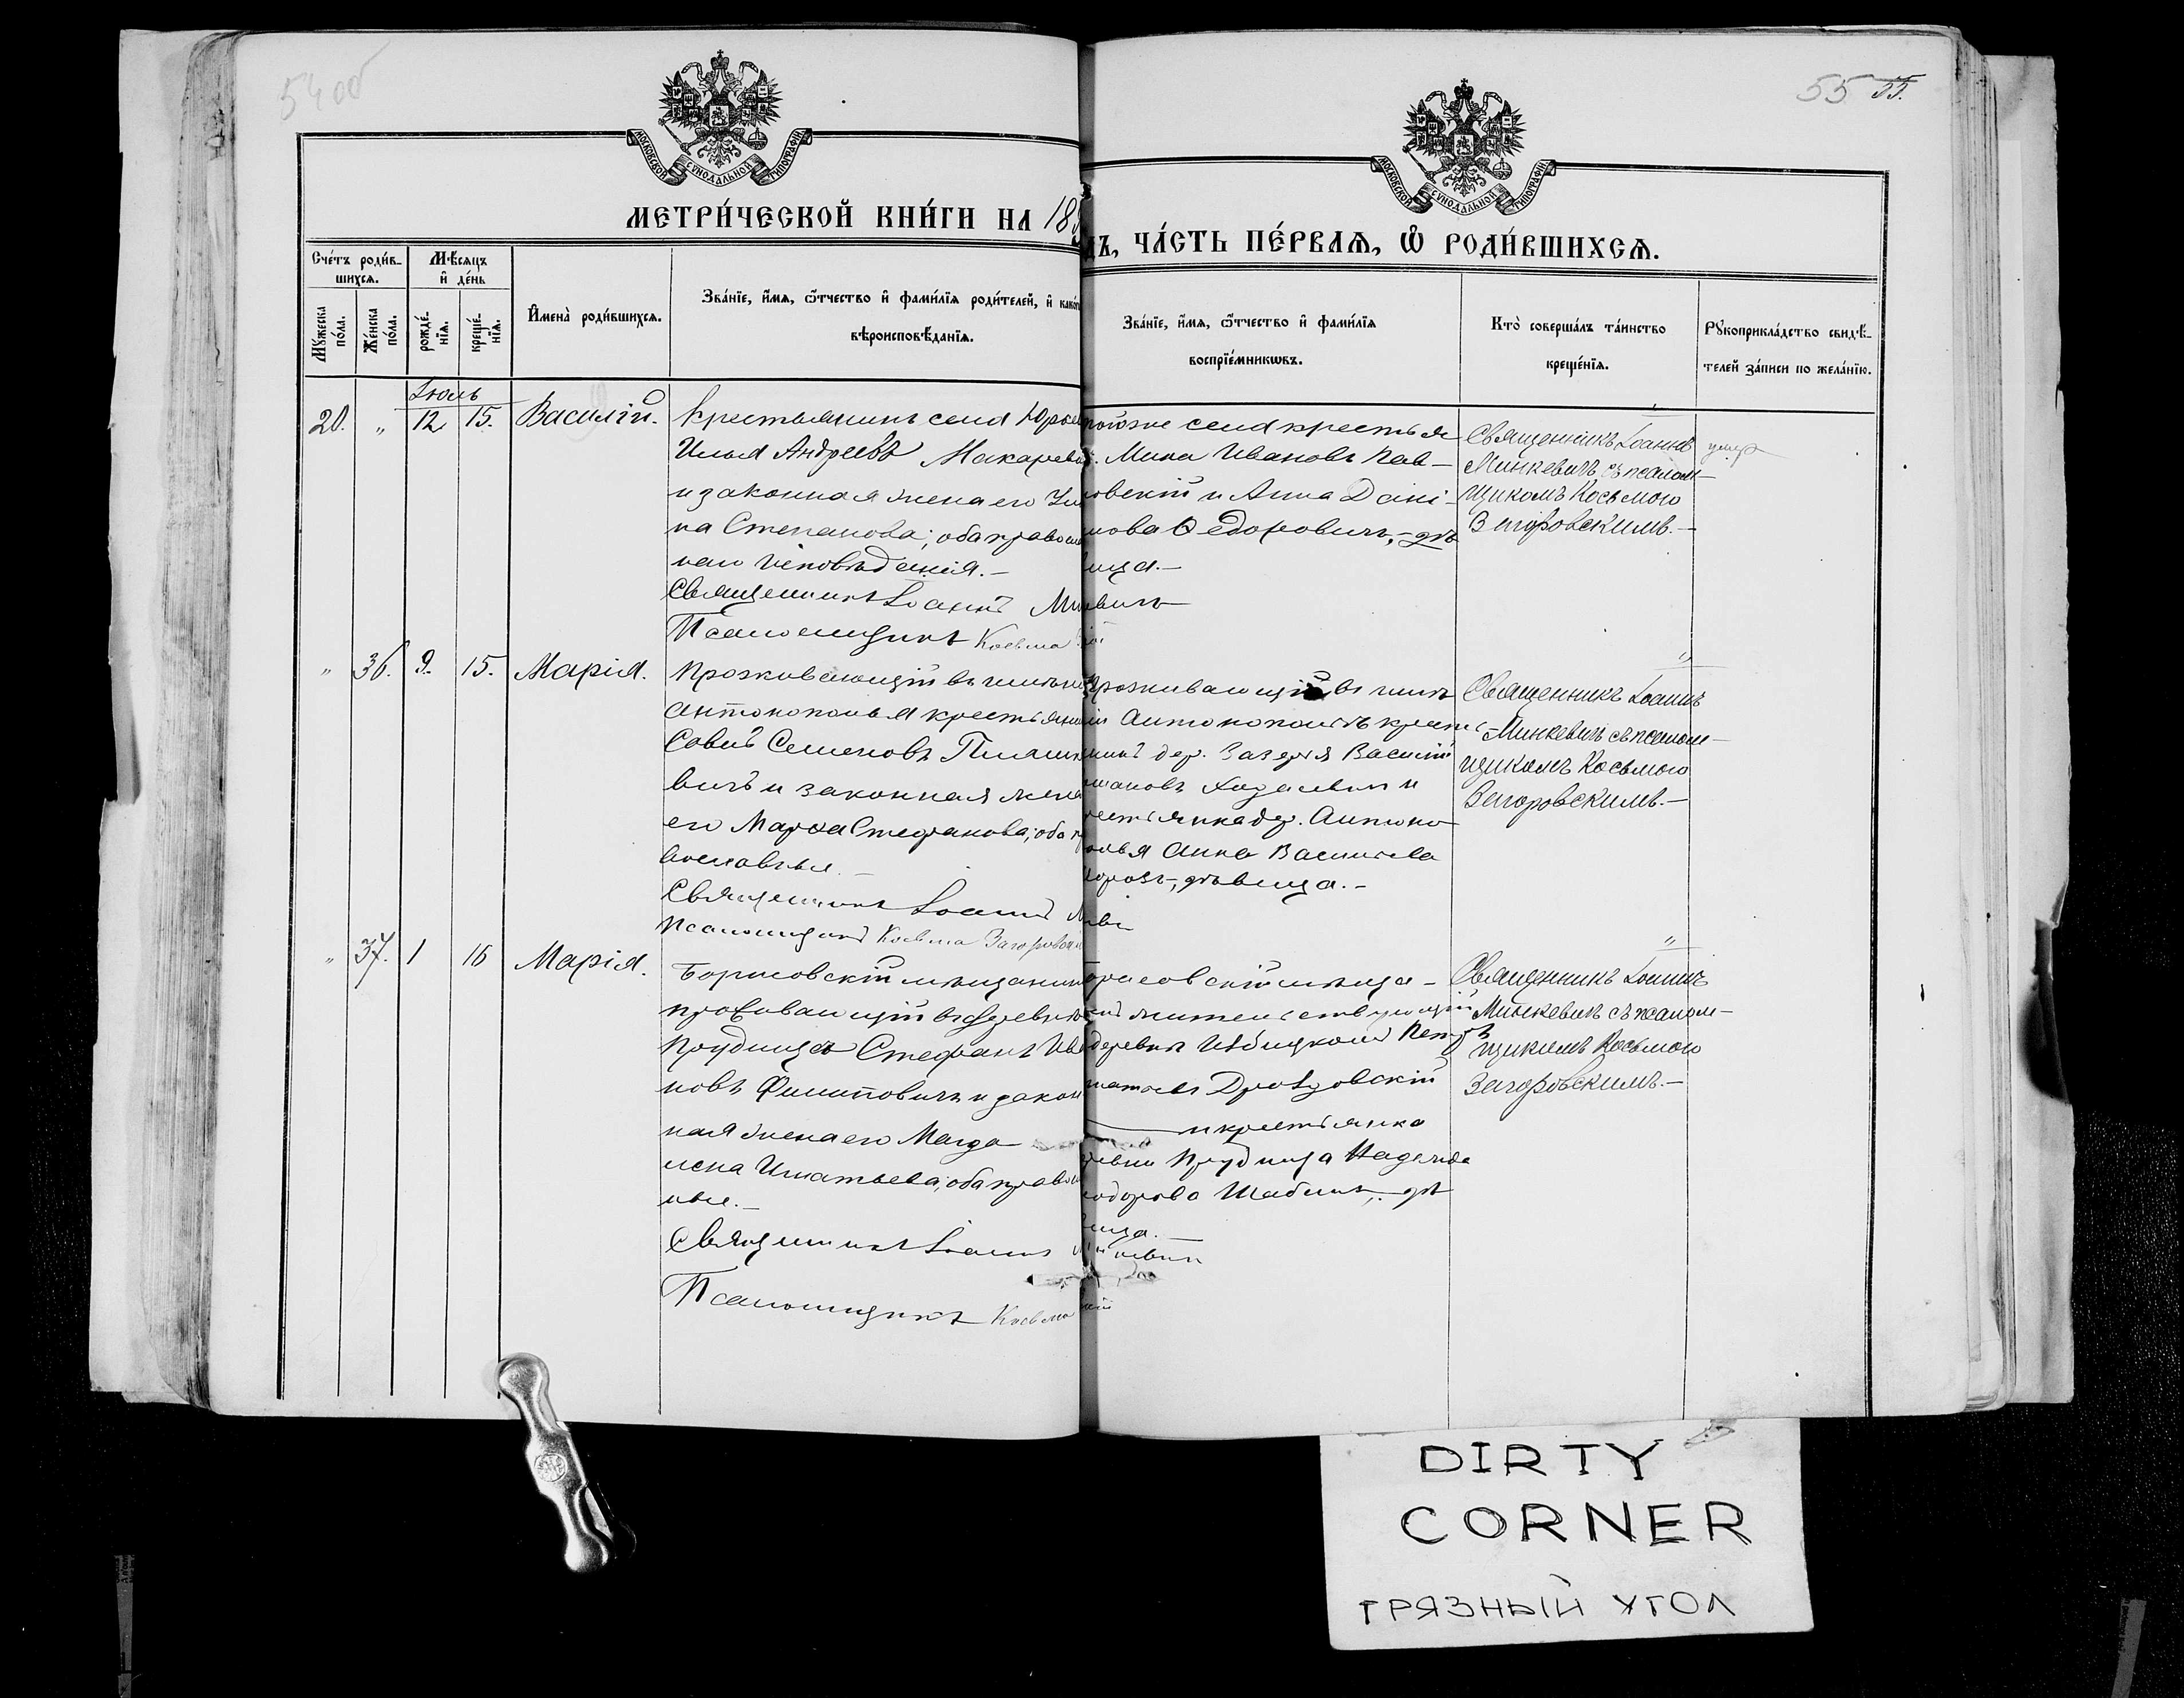 54об
55 55.
МОСКОВСКОЙ СѴНОДАЛЬНОЙ ТИПОГРАФІИ
МОСКОВСКОЙ СѴНОДАЛЬНОЙ ТИПОГРАФІИ
МЕТРИ́ЧЕСКОЙ КНИ́ГИ НА 18
ДЪ, ЧА́СТЬ ПЕ́РВАѦ, Ѽ РОДИ́ВШИХСѦ.
Сче́тъ роди́в-
шихсѧ.
Мѣ́сѧцъ
и҆ де́нь
Мꙋ́жеска по́ла.
Же́нска по́ла.
рожде́-нїѧ.
креще́-нїѧ.
И҆мена̀ роди́вшихсѧ.
Зва́нїе, и҆́мѧ, ѻ҆́тчество и҆ фами́лїѧ роди́телей, и҆ како́г
вѣроисповѣ́данїѧ.
Зва́нїе, и҆́мѧ, ѻ҆́тчество и҆ фами́лїѧ
воспрїе́мникѡвъ.
Кто̀ соверша́лъ та́инство
креще́нїѧ.
Рꙋкоприкла́дство свидѣ́-
телей за́писи по жела́нїю.
Іюль
20. " 12 15. Василій.
Крестьянинъ села Юрсе
Илья Андреевъ Макареви
и законная жена его Ул
на Степанова; оба правосла
наго исповѣданія.–
Священникъ Іоаннъ Ми
Псаломщикъ Косьма
тогоже села крестья
Мина Ивановъ Пав–
ловскій и Анна Дані–
лова Ѳедоровичъ,–дѣ
вица.–
евичъ
Священникъ Іоаннъ
Минкевичъ съ псалом–
щикомъ Косьмою
Загоровскимъ.–
умер
" 36. 9. 15. Марія.
Проживающій въ имѣні
Антонополья крестьянин
Савъ Семеновъ Пляшк
вичъ и законная жена
его Марѳа Стефанова; оба пр
вославные.–
Священникъ Іоаннъ М
Псаломщикъ Косьма Загоровскі
Проживающій въ имѣ
ніи Антонопольѣ крест
нинъ дер. Зазерья Василій
Ходасевич и
рестьянка дер. Антоно
олья Анна Василева
дѣвица.–
Священникъ Іоаннъ
–Минкевичъ съ псалом–
щикомъ Косьмою
Загоровскимъ.–
" 37. 1 16 Марія.
Борисовскій мѣщанин
проживающій въ деревнѣ
Прудище Стефанъ Ива
новъ Филиповичъ и закон
ная жена его Магда–
лена Игнатьева; оба правосл
ные.–
Священникъ Іоаннъ Минкевич
Псаломщикъ Косьма
орисовскій мѣща–
инъ жительствующій
деревни Петръ
натьевъ Дроздовскій
и крестьянка
ревни Прудища Надежда
одорова Шаблик, дѣ
вица.–
Священникъ Іоаннъ
Минкевичъ съ псалом–
щикомъ Косьмою
Загоровскимъ.–
DIRTY
CORNER
ГРЯЗНЫЙ УГОЛ